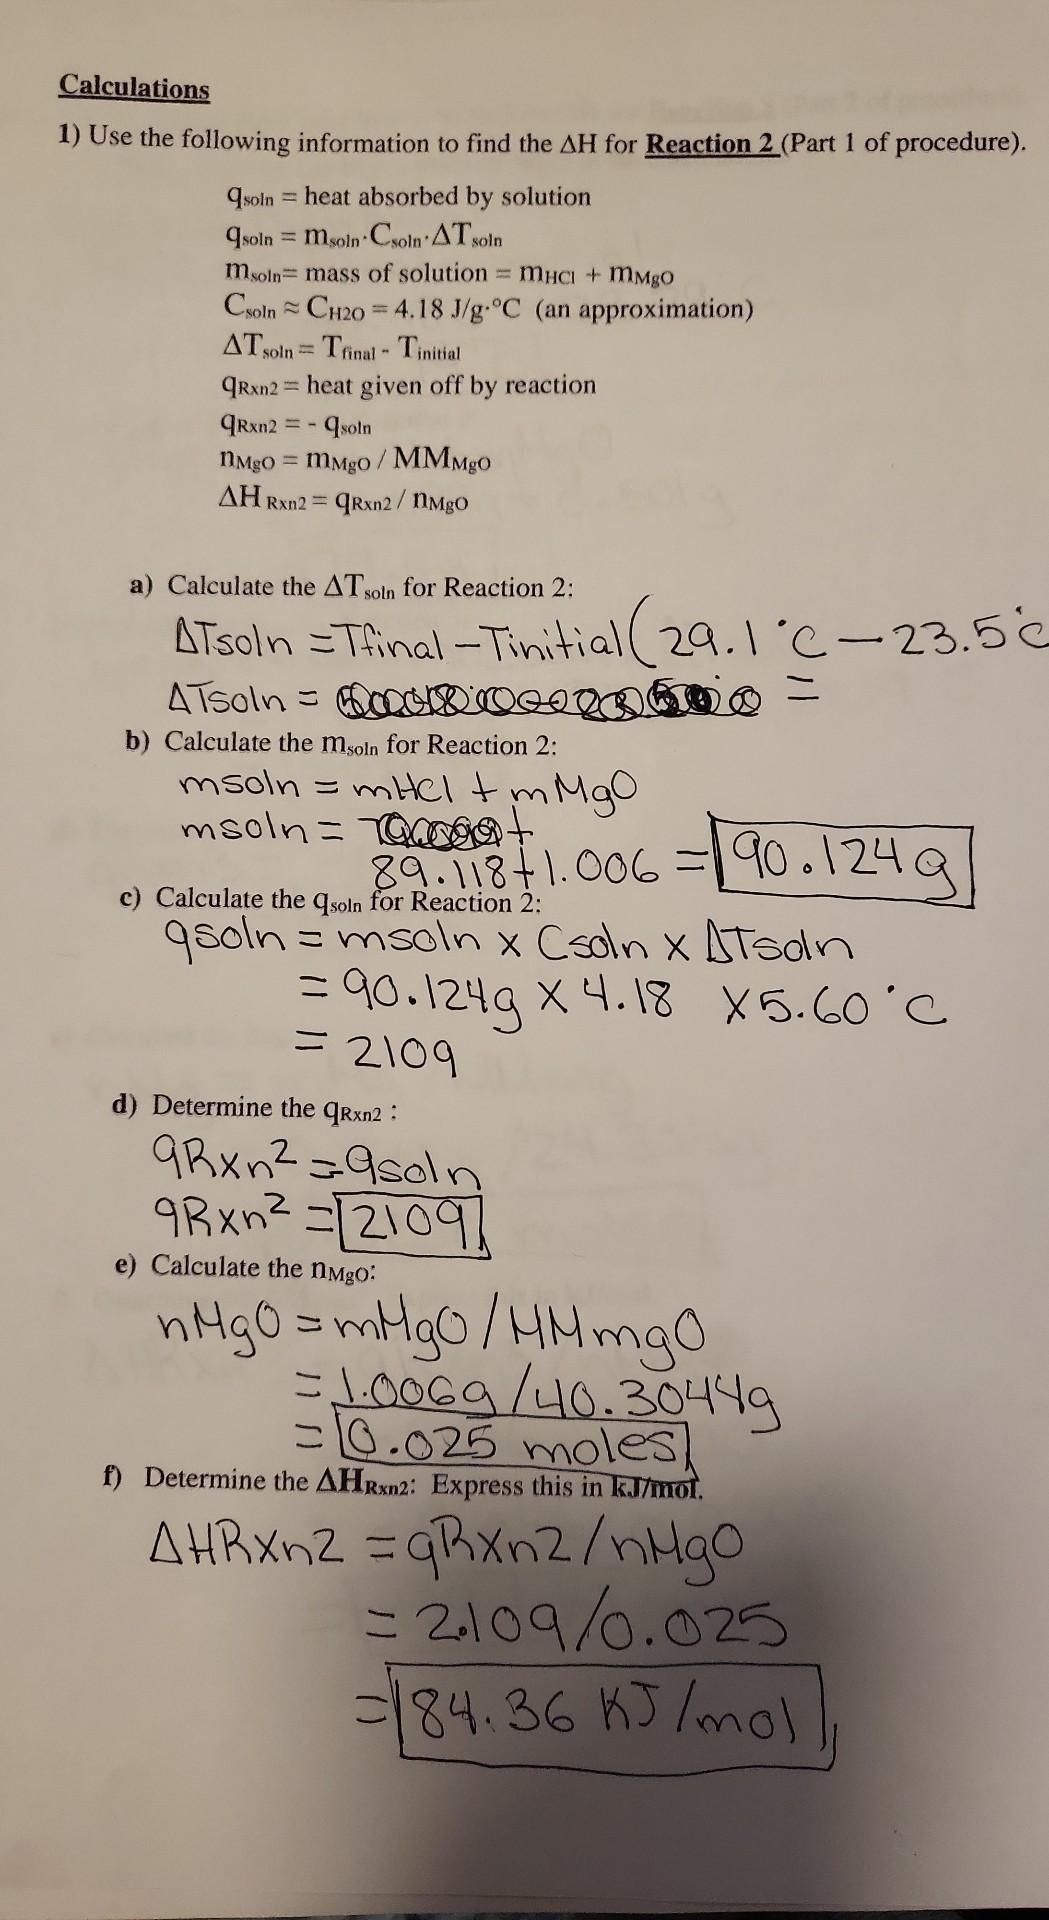 Calculations
1) Use the following information to find the ΔH for Reaction 2 (Part 1 of procedure).
qsoln = heat absorbed by solution
qsoln = msoln·Csoln·ΔTsoln
msoln= mass of solution = mHCl + mMgO
Csoln ≈ CH2O = 4.18 J/g·°C (an approximation)
ΔTsoln = Tfinal - Tinitial
qRxn2 = heat given off by reaction
qRxn2 = - qsoln
nMgO = mMgO / MMMgO
ΔH Rxn2 = qRxn2 / nMgO
a) Calculate the ΔTsoln for Reaction 2:
ΔTsoln = Tfinal - Tinitial (29.1 °C - 23.5°C
ΔTsoln = =
b) Calculate the msoln for Reaction 2:
msoln = mHCl + mMgO
msoln = +
89.118+1.006 = 90.124g
c) Calculate the qsoln for Reaction 2:
qsoln = msoln x Csoln x ΔTsoln
= 90.124g x 4.18 x 5.60 °C
= 2109
d) Determine the qRxn2 :
qRxn2 = qsoln
qRxn2 = 2109
e) Calculate the nMgO:
nMgO = mMgO / MMmgO
= 1.006g /40.3044g
= 0.025 moles
f) Determine the ΔHRxn2: Express this in kJ/mol.
ΔHRxn2 = qRxn2 / nMgO
= 2.109/0.025
= 84.36 KJ/mol